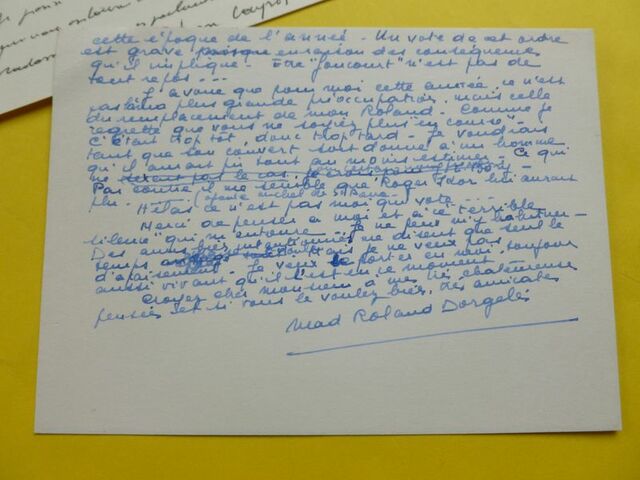 cette époque de l'année - Un vote de cet ordre
est grave puisque en raison des conséquences
qu'il implique - Etre "Goncourt" n'est pas de
tout repos...
J'avoue que pour moi cette année, ce n'est
pas la plus grande préoccupation, mais celle
du remplacement de mon Roland - Comme je
regrette que vous ne soyez plus "en course" -
C'était trop tôt, donc trop tard - Je voudrais
tant que son couvert soit donné à un homme
qu'il aurait pu tout au moins estimer - Ce qui
ne
Par contre il me semble que Roger lui aurait
plu -
Hélas ce n'est pas moi qui vote ---
Merci de penser à moi et à ce "terrible
silence" qui m'entoure - Je ne peux m'y habituer -
Des âmes bien intentionnées me disent que seul le
temps Je ne veux pas
d'apaisement - Je veux le porter en moi, toujours
aussi vivant qu'il l'est en ce moment
Croyez cher monsieur à mes très
pensées et si vous le voulez bien, des amicales
Mad Roland Dorgelès